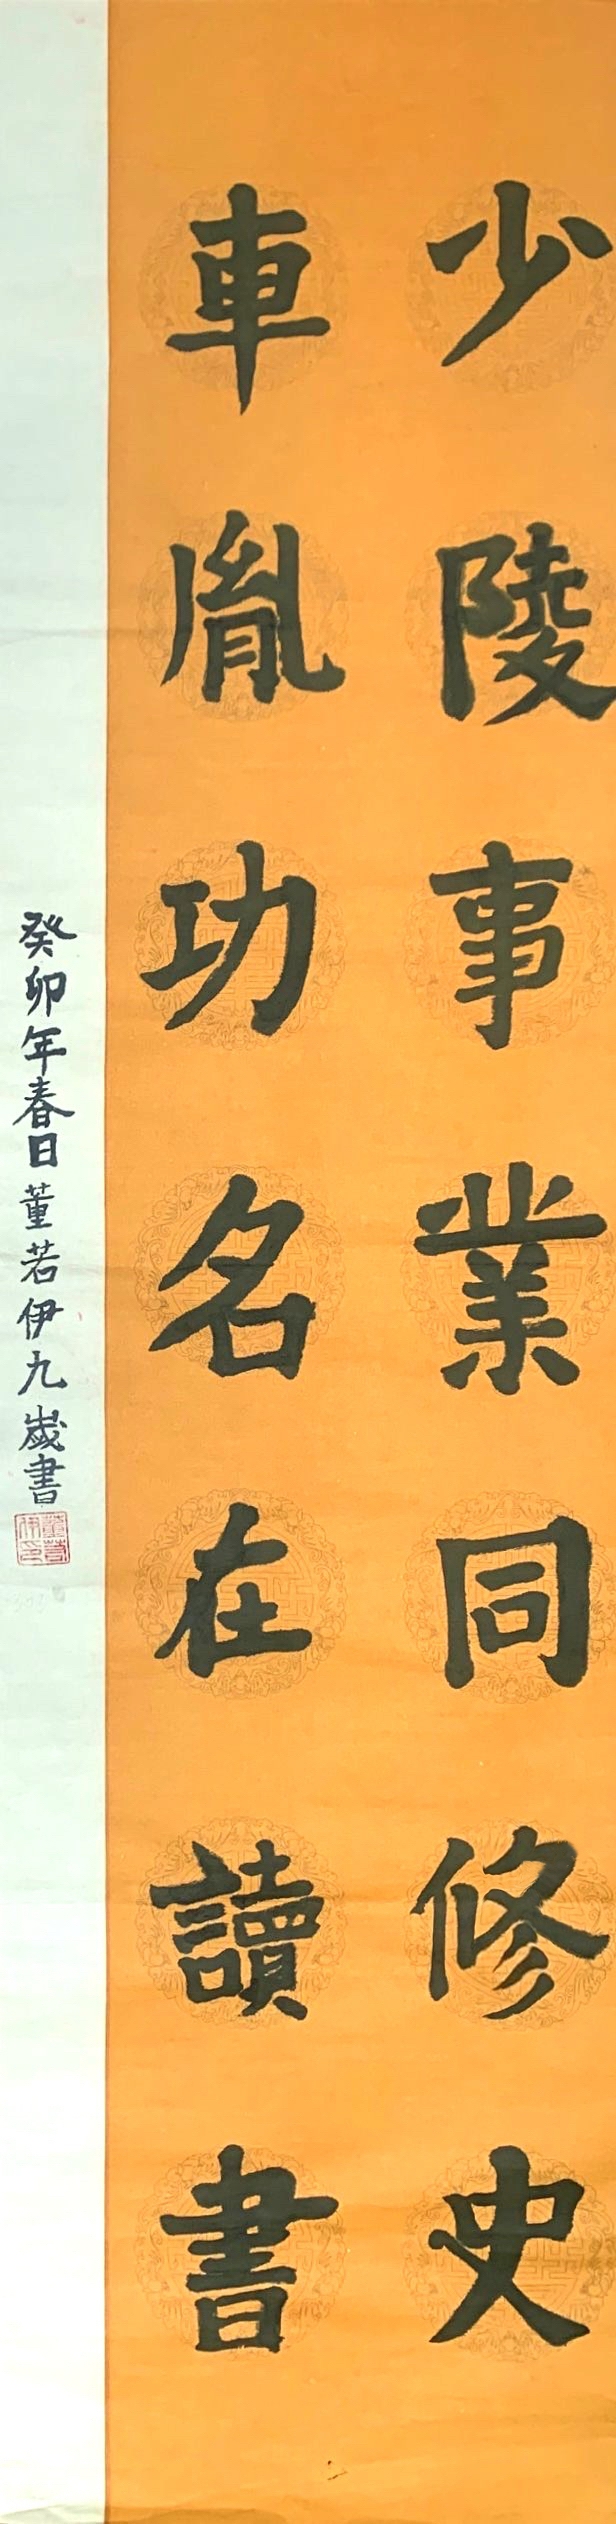 少陵事業同修史
車胤功名在讀書
癸卯年春日董若伊九歲書